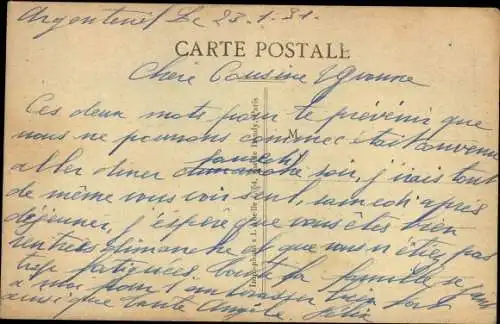 Argenteuil Le 23.1.31.
CARTE POSTALE
Chère Cousine Yvonne
Ces deux mots pour te prévenir que
nous ne pourrons comme c'était convenu
aller diner dimanche soir, j'irais tout
samedi
de même vous voir seul, samedi après
déjeuner, j'espère que vous êtes bien
rentrées dimanche et que vous n'étiez pas
trop fatiguées. Toute la famille se joint
à moi pour t'embrasser bien fort
ainsi que tante